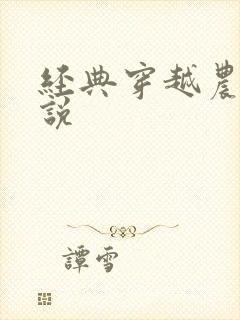 經典穿越農
說
譚雪